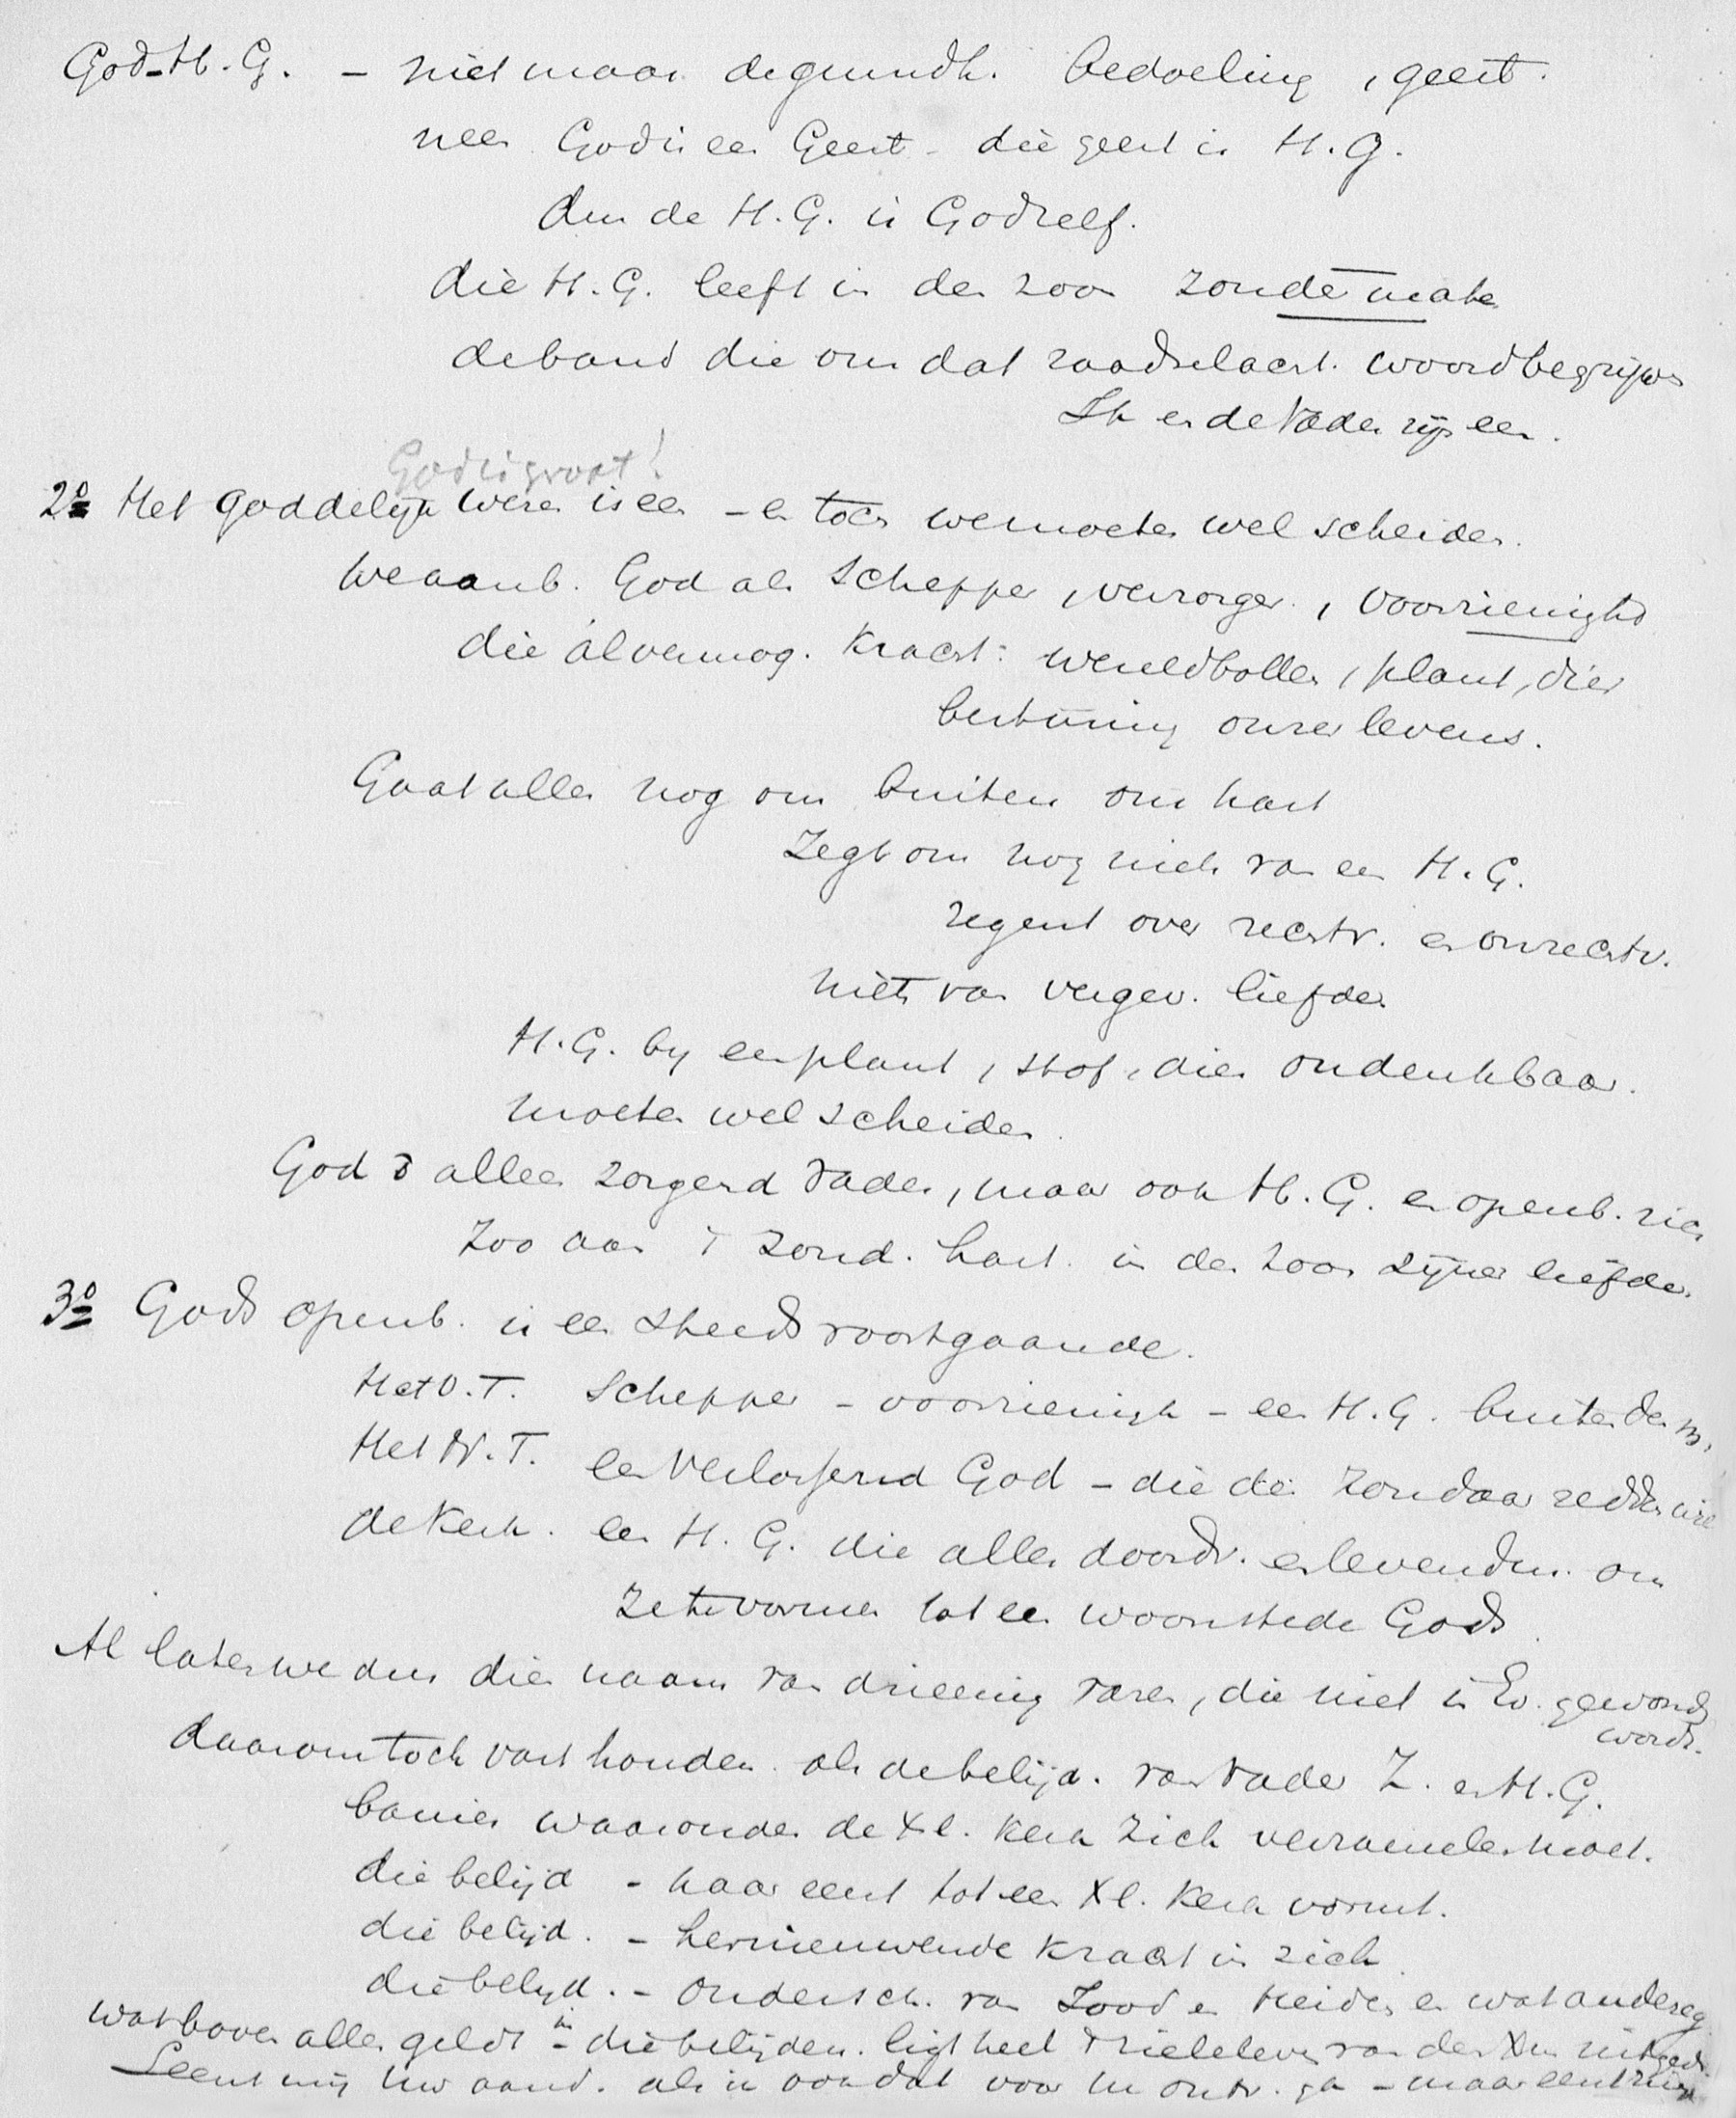 God-H.G. - niet maar de grondh. bedoeling, geest.
neen God is een Geest - die geest is H.G.
dus de H.G. is God zelf.
die H.G. leeft in den Zoon zonder mate
de band die ons dat raadselacht. woord begrijpen
Ik en de Vader zijn een.
God is groot!
2º Het goddelijk wezen is een - en toch we moeten wel scheiden.
We aanb. God als Schepper, verzorger, voorzienighd
die alvermog. kracht: wereldbollen, plant, dier
besturing onzes levens.
Gaat alles nog om buiten ons hart
Zegt ons nog niets van een H.G.
regent over rechtv. en onrechtv.
niets van vergev. liefde.
H.G. by een plant, stof, dier ondenkbaar.
moeten wel scheiden.
God alleen zorgend Vader, maar ook H.G. en openb. zich
Zoo aan 't zond. hart. in den Zoon zijner liefde.
3º Gods openb. is een steeds voortgaande.
Het O.T. Schepper - voorzienigh - een H.G. buiten den m.
Het N.T. een Verlossend God - die de zondaar redden wil
de Kerk. een H.G. die alles doordr. en levendm. om
ze te vormen tot een woonstede Gods.
Al laten we dus dien naam van drieenig varen, die niet in Ev. gevonden
wordt.
daarom toch vast houden als de belijd. van Vader Z. en H.G.
banier waaronder de Xl. kerk zich verzamelen moet.
die belijd - haar eerst tot een Xl. kerk vormt.
die belijd. - hernieuwende kracht in zich.
die belyd. - ondersch. van Jood en Heiden en wat andereg
wat boven alles geldt - in die belijden. ligt heel 't zieleleven van den Xen uitged.
Leent mij Uw aand. als ik ook dat voor U ontv. ga - maar eerst zing